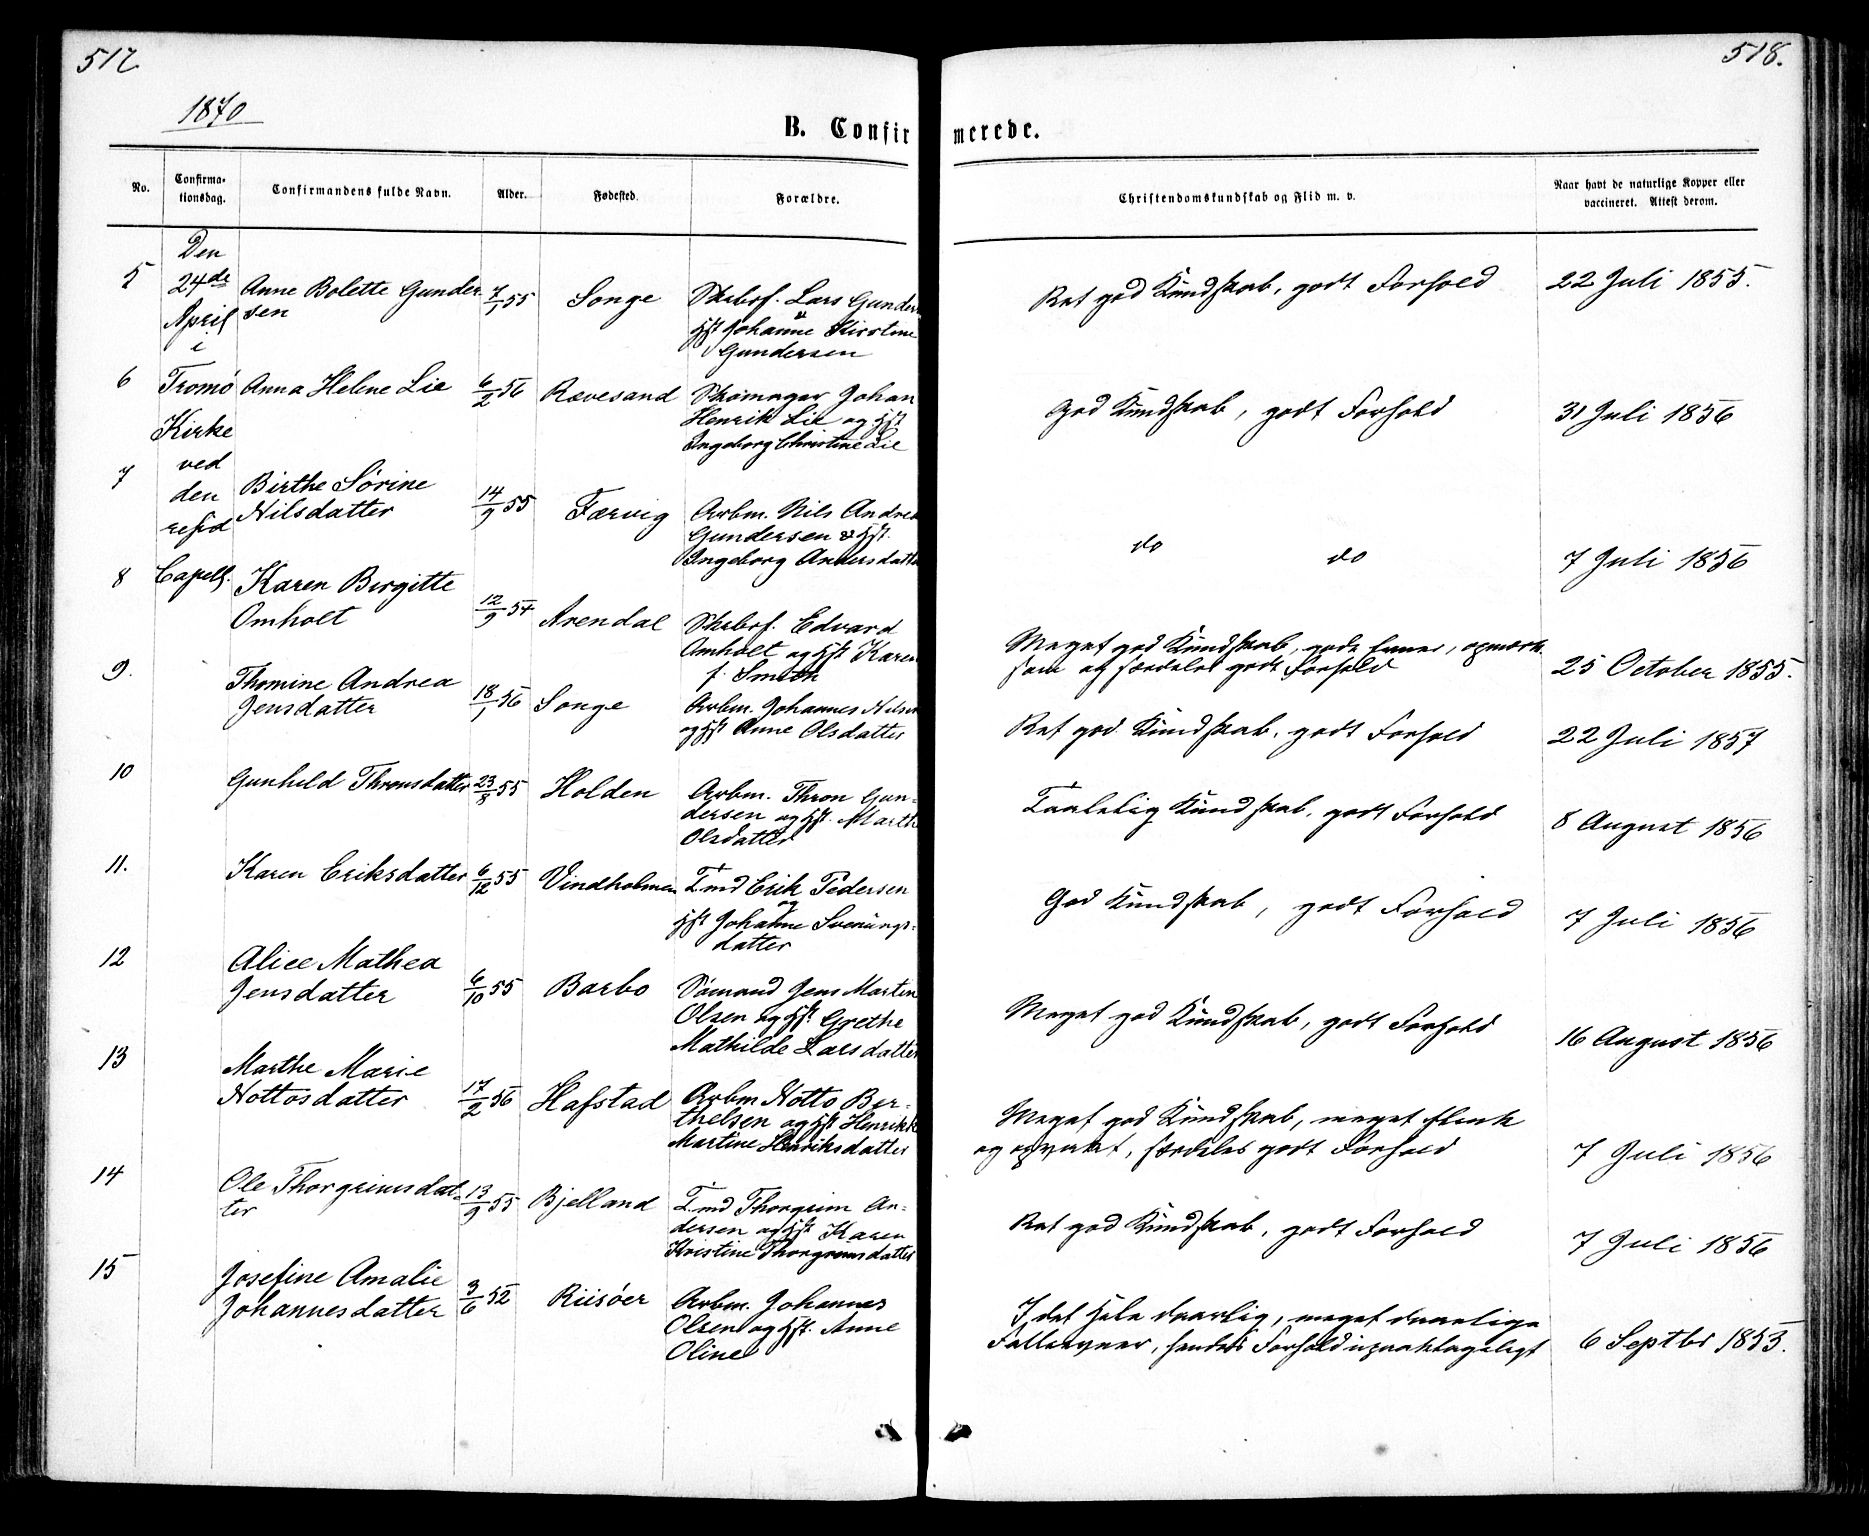 517
518.
1870
B. Confirmerede.
No.
Confirmationsdag.
Confirmandens fulde Navn.
Alder.
Fødested.
Forældre.
Christendomskundskab og Flid m. v.
Naar havt de naturlige Kopper eller
vaccineret. Attest derom.
Den
24de
April
i
Tromø
Kirke
ved
den
resid
Capell.
5
Anne Bolette Gunder
sen
7/1 55
Songe
Skibsf. Lars Gunders
& Hst Johanne Kirstine
Gundersen
Ret god Kundskab, godt Forhold
22 Juli 1855.
6
Anna Helene Lie
6/2 56
Rævesand
Skomager Johan
Henrik Lie og Hst
Ingeborg Christine Lie
God Kundskab, godt Forhold
31 Juli 1856
7
Birthe Sørine
Nilsdatter
14/9 55
Færvig
Arbm. Nils Andrea
Gundersen & Hst.
Ingeborg Andersdatte
do do
7 Juli 1856
8
Karen Birgitte
Omholt
12/9 54
Arendal
Skibsf. Edvard
Omholt og Hst Karen
f. Smith
Meget god Kundskab, gode Evner, opmærk
som og særdeles godt Forhold
25 October 1855.
9.
Thomine Andrea
Jensdatter
18/1 56
Songe
Arbm. Johannes Nilsen
og Hst Anne Olsdatter
Ret god Kundskab, godt Forhold
22 Juli 1857
10
Gunhild Thronsdatter
23/8 55
Holden
Arbm. Thron Gun-
dersen og Hst. Marth
Olsdatter
Taalelig Kundskab, godt Forhold
8 August 1856
11.
Karen Eriksdatter
6/12 55
Vindholmen
T.md Erik Pedersen
og
Hst Johanne Svenungs-
datter
God Kundskab, godt Forhold
7 Juli 1856
12
Alice Mathea
Jensdatter
6/10 55
Barbo
Sømand Jens Martin
Olsen og Hst. Grethe
Mathilde Larsdatter
Meget god Kundskab, godt Forhold
16 August 1856
13
Marthe Marie
Nottosdatter
17/2 56
Hafstad
Arbm Notto Ber-
thelsen og Hst Henrikke
Martine Henriksdatter
Meget god Kundskab, meget flink
og opvakt, særdeles godt Forhold
7 Juli 1856
14
Ole Thorgrimsdat-
ter
13/9 55
Bjelland
T.md Thorgrim An-
dersen og Hst Karen
Kristine Thorgrimsdatter
Ret god Kundskab, godt Forhold
7 Juli 1856
15
Josefine Amalie
Johannesdatter
3/6 52
Riisøer
Arbm. Johannes
Olsen og Hst. Anne
Oline
I det Hele daarlig, meget daarlige
Fatteevner, hendes Forhold upaaklageligt
6 Septbr 1853.